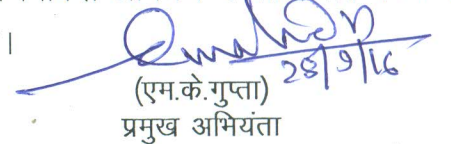 ।
28/9/16
(एम.के.गुप्ता)
प्रमुख अभियंता